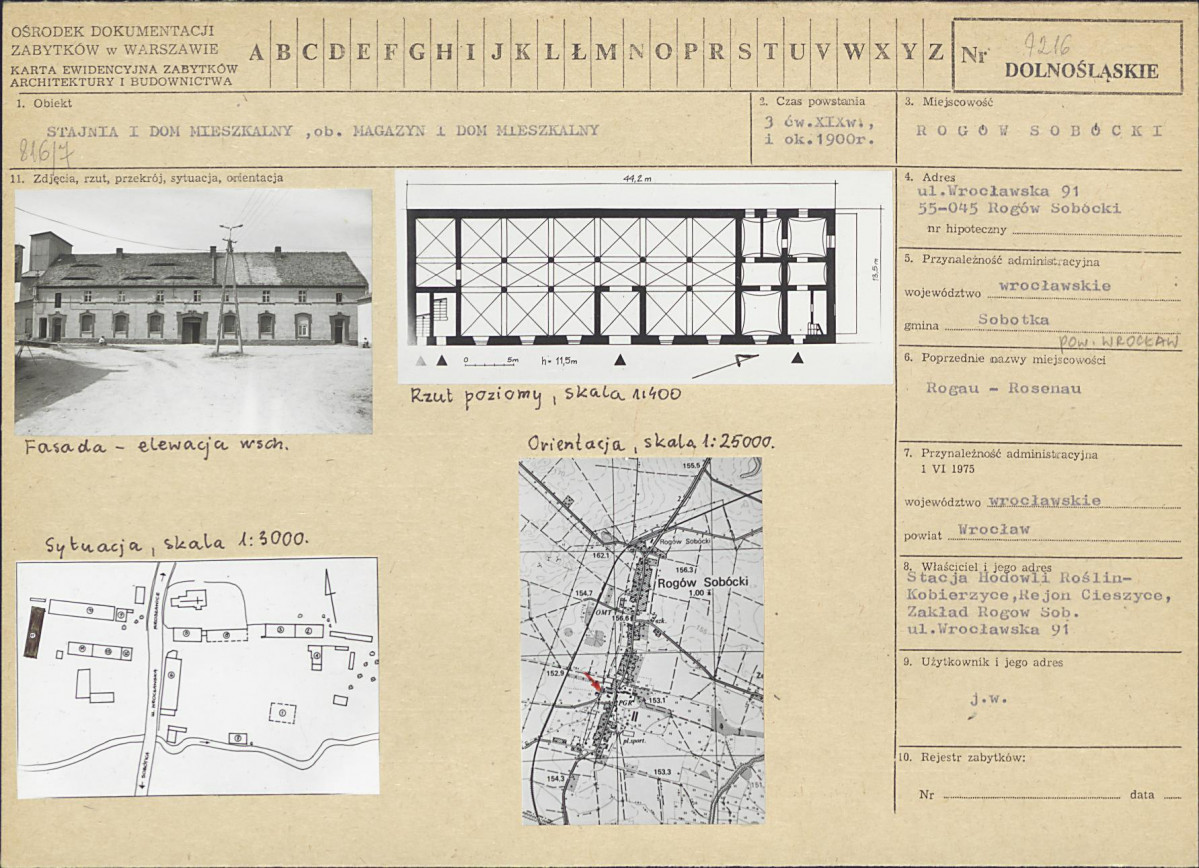 OŚRODEK DOKUMENTACJI
ZABYTKÓW w WARSZAWIE
KARTA EWIDENCYJNA ZABYTKÓW
ARCHITEKTURY I BUDOWNICTWA
A B C D E F G H I J K L Ł M N O P R S T U V W X Y Z
Nr 7216
DOLNOŚLĄSKIE
1. Obiekt
STAJNIA I DOM MIESZKALNY ,ob. MAGAZYN i DOM MIESZKALNY
816/7
2. Czas powstania
3 ćw.XIXw.,
i ok.1900r.
3. Miejscowość
ROGÓW SOBÓCKI
11. Zdjęcia, rzut, przekrój, sytuacja, orientacja
44,2 m
13,5 m
0 5m h= 11,5m
Rzut poziomy, skala 1:400
Fasada - elewacja wsch.
Orientacja, skala 1:25000.
155.5
Rogów Sobócki
162.1
156.3
Rogów Sobócki
1,00
154.7
OMT
156.6
szk.
152.9
PGR
153.1
II
pl.sport.
154.3
153.3
Sytuacja, skala 1:3000.
UL. WROCŁAWSKA
SOBÓTKA
4. Adres
ul.Wrocławska 91
55-045 Rogów Sobócki
nr hipoteczny
5. Przynależność administracyjna
województwo wrocławskie
gmina Sobotka
POW. WROCŁAW
6. Poprzednie nazwy miejscowości
Rogau - Rosenau
7. Przynależność administracyjna
1 VI 1975
województwo wrocławskie
powiat Wrocław
8. Właściciel i jego adres
Stacja Hodowli Roślin-
Kobierzyce,Rejon Cieszyce,
Zakład Rogow Sob.
ul.Wrocławska 91
9. Użytkownik i jego adres
j.w.
10. Rejestr zabytków:
Nr data